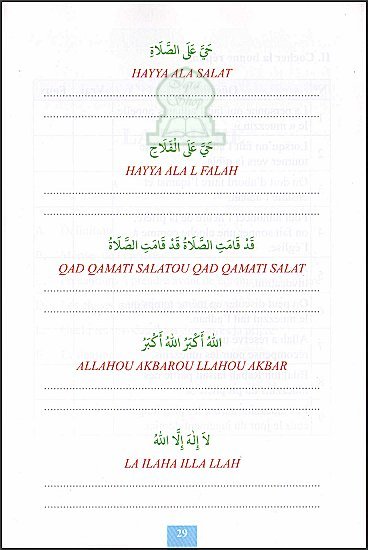 حَيَّ عَلَى الصَّلَاةِ
HAYYA ALA SALAT
حَيَّ عَلَى الْفَلَاحِ
HAYYA ALA L FALAH
قَدْ قَامَتِ الصَّلَاةُ قَدْ قَامَتِ الصَّلَاةُ
QAD QAMATI SALATOU QAD QAMATI SALAT
اللهُ أَكْبَرُ اللهُ أَكْبَرُ
ALLAHOU AKBAROU LLAHOU AKBAR
لاَ إِلٰهَ إِلَّا اللهُ
LA ILAHA ILLA LLAH
29